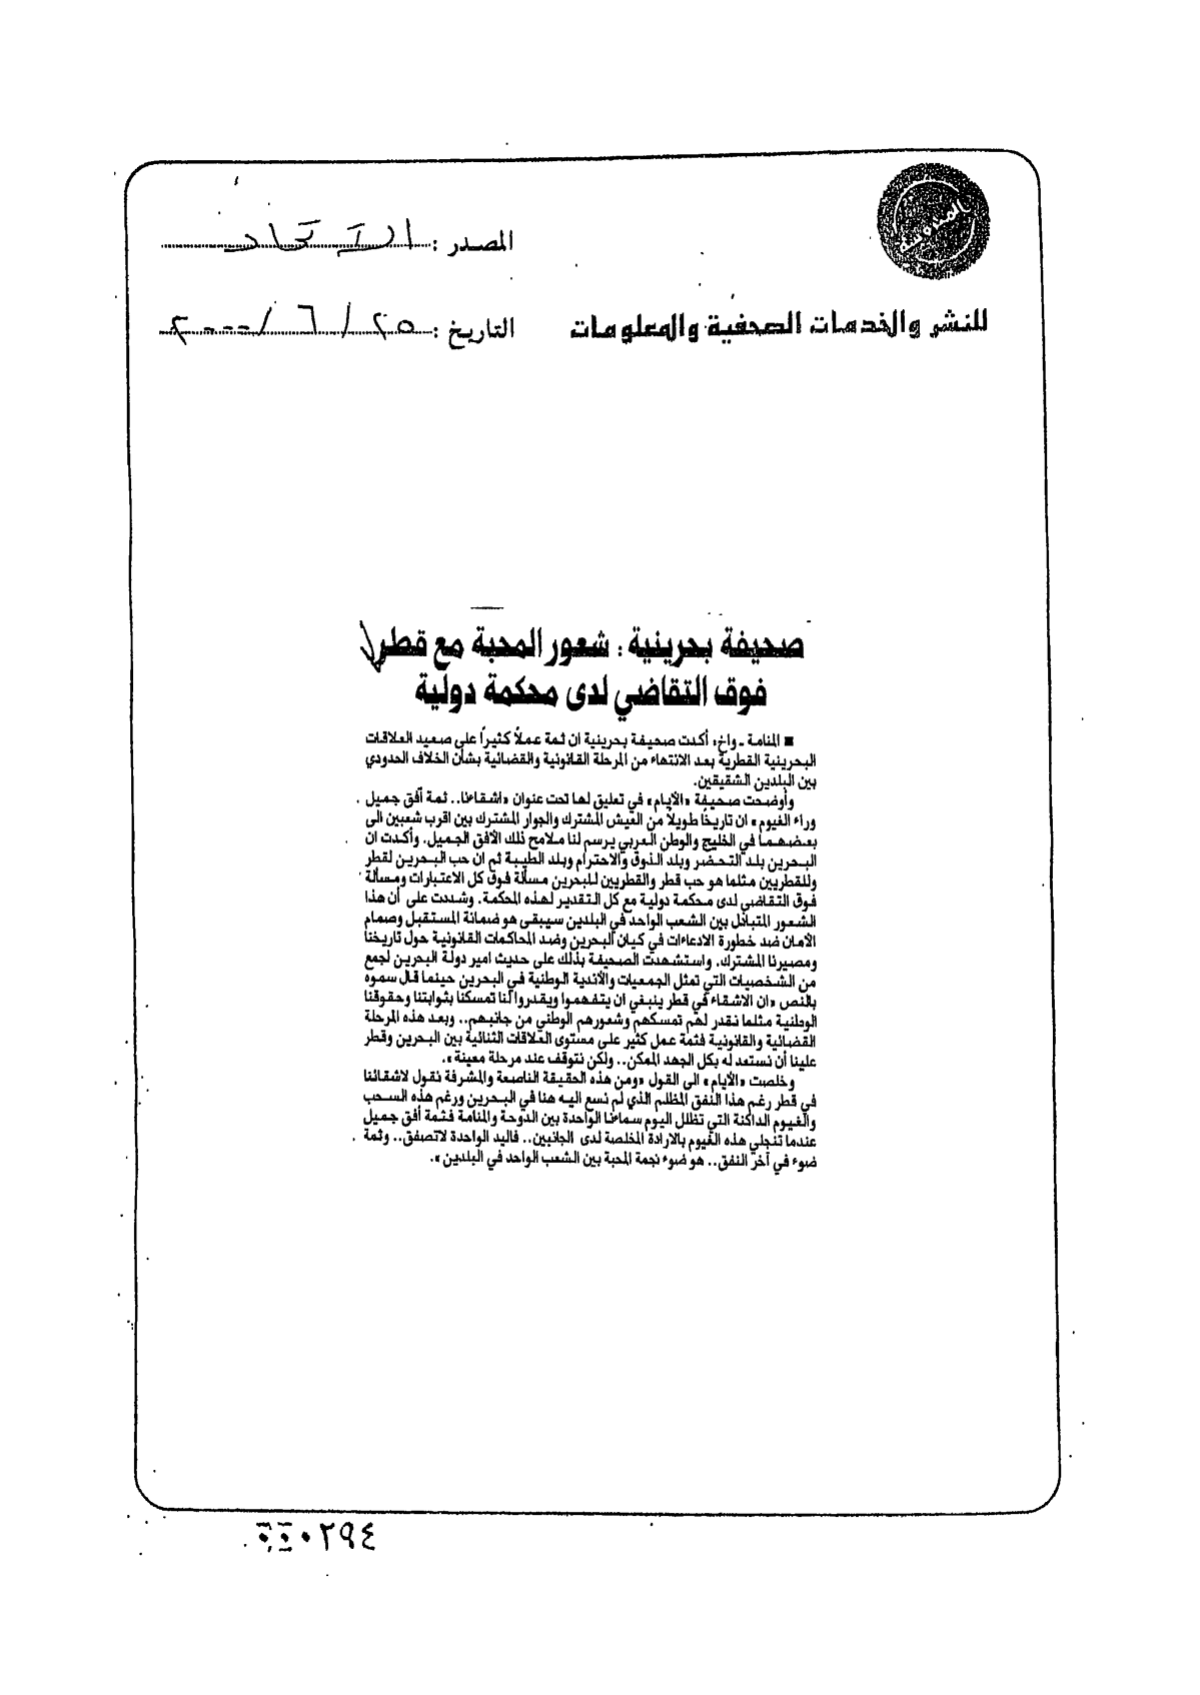 المصدر : الاتحاد
للنشر والخدمات الصحفية والمعلومات
التاريخ : ٢٥ / ٦ / ٢٠٠٠
صحيفة بحرينية : شعور المحبة مع قطر
فوق التقاضي لدى محكمة دولية
■ المنامة ـ واخ: أكدت صحيفة بحرينية ان ثمة عملاً كثيراً على صعيد العلاقات
البحرينية القطرية بعد الانتهاء من المرحلة القانونية والقضائية بشأن الخلاف الحدودي
بين البلدين الشقيقين.
وأوضحت صحيفة «الأيام» في تعليق لها تحت عنوان «اشقاءنا.. ثمة أفق جميل
وراء الغيوم» ان تاريخاً طويلاً من العيش المشترك والجوار المشترك بين اقرب شعبين الى
بعضهما في الخليج والوطن العربي يرسم لنا ملامح ذلك الأفق الجميل. وأكدت ان
البحرين بلد التحضر وبلد الذوق والاحترام وبلد الطيبة ثم ان حب البحرين لقطر
وللقطريين مثلما هو حب قطر والقطريين للبحرين مسألة فوق كل الاعتبارات ومسألة
فوق التقاضي لدى محكمة دولية مع كل التقدير لهذه المحكمة. وشددت على أن هذا
الشعور المتبادل بين الشعب الواحد في البلدين سيبقى هو ضمانة المستقبل وصمام
الأمان ضد خطورة الادعاءات في كيان البحرين وضد المحاكمات القانونية حول تاريخنا
ومصيرنا المشترك. واستشهدت الصحيفة بذلك على حديث امير دولة البحرين لجمع
من الشخصيات التي تمثل الجمعيات والأندية الوطنية في البحرين حينما قال سموه
بالنص «ان الاشقاء في قطر ينبغي ان يتفهموا ويقدروا لنا تمسكنا بثوابتنا وحقوقنا
الوطنية مثلما نقدر لهم تمسكهم وشعورهم الوطني من جانبهم.. وبعد هذه المرحلة
القضائية والقانونية فثمة عمل كثير على مستوى العلاقات الثنائية بين البحرين وقطر
علينا أن نستعد له بكل الجهد الممكن.. ولكن نتوقف عند مرحلة معينة».
وخلصت «الأيام» الى القول «ومن هذه الحقيقة الناصعة والمشرفة نقول لاشقائنا
في قطر رغم هذا النفق المظلم الذي لم نسع اليه هنا في البحرين ورغم هذه السحب
والغيوم الداكنة التي تظلل اليوم سماءنا الواحدة بين الدوحة والمنامة فثمة أفق جميل
عندما تنجلي هذه الغيوم بالارادة المخلصة لدى الجانبين.. فاليد الواحدة لاتصفق.. وثمة
ضوء في آخر النفق.. هو ضوء نجمة المحبة بين الشعب الواحد في البلدين».
٠٢٩٤